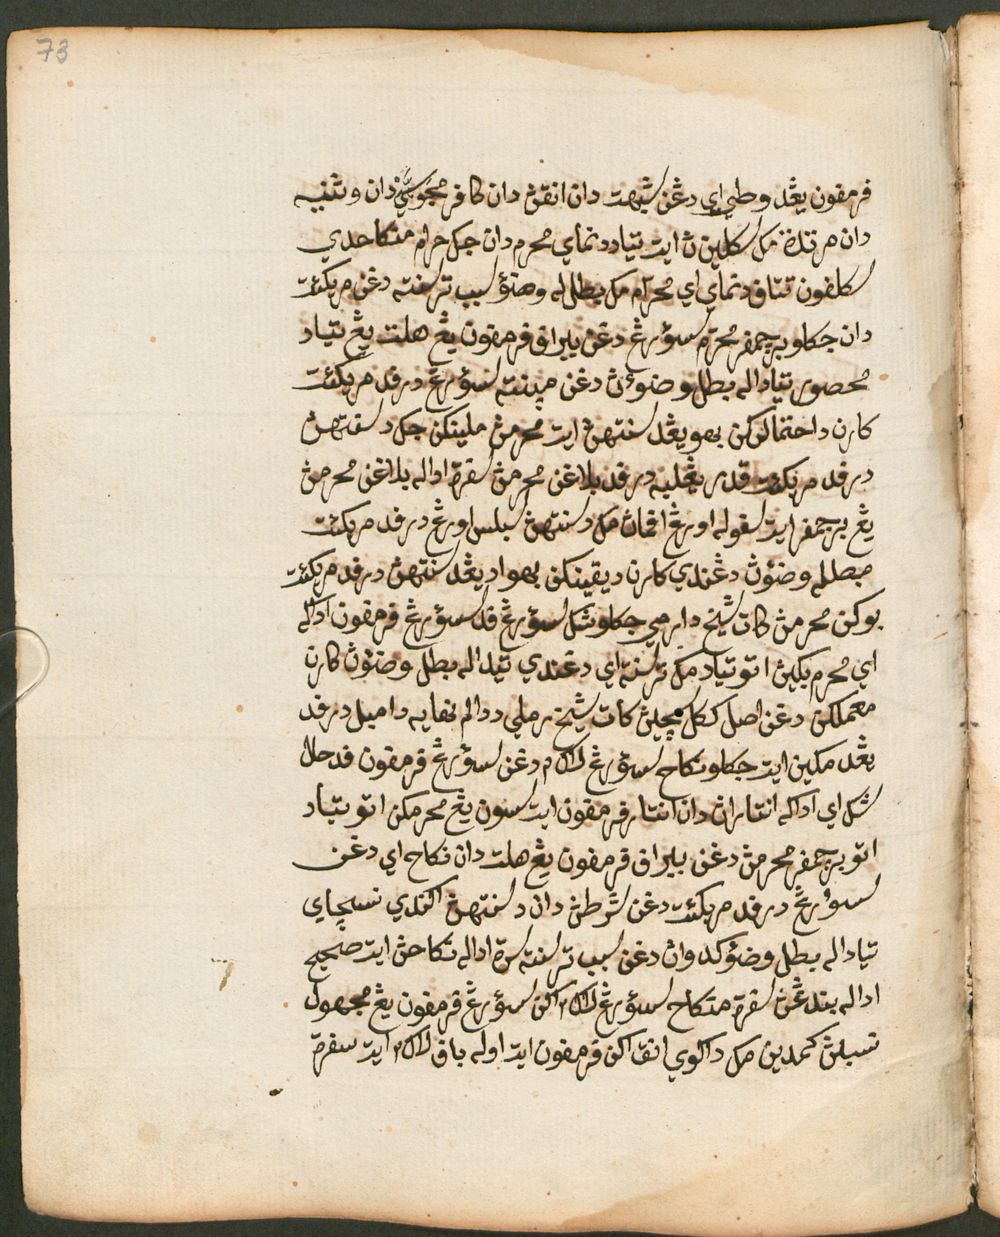 73
فرمڤون يڠد وطي اي دڠن شبهت دان انقڽ دان كافر مجوسي دان وثنيه
دان مرتدة مك سكلين ڽ ايت تياد دنماي محرم دان جك حرام منكاحدي
سكلفون تتاڤ دنماي اي محرم مك بطلله وضؤ سبب ترسنته دڠن مريكئت
دان جكلو برچمڤر محرم سؤرڠ دڠن ببراڤ فرمڤون يڠ هلت يڠ تياد
محصور تيادله بطل وضوءڽ دڠن مپنته سؤرڠ درفد مريكئت
كارن داحتمالكن بهو يڠد سنتهڽ ايت محرمڽ ملينكن جك دسنتهڽ
درفد مريكئت قدر يڠلبه درفد بلاڠن محرمڽ سفرة اداله بلاڠن محرمڽ
يڠ برچمڤر ايت سفوله اورڠ اڤمان مك دسنتهڽ سبلس اورڠ درفد مريكئت
مبطلله وضؤڽ دڠندي كارن ديقينكن بهوا د يڠد سنتهڽ درفد مريكئت
بوكن محرمڽ كات شيخ دارمي جكلو شك سؤرڠ فد سؤرڠ فرمڤون اداله
اي محرم بڬيڽ اتو تياد مك ترسنته اي دڠندي تيداله بطل وضؤڽ كارن
معملكن دڠن اصل ككل سچين كات شيخ رملي ددالم نهايه دامبل درفد
يڠد مكين ايت جكلو نكاح سؤرڠ لاك٢ دڠن سؤرڠ فرمڤون فدحال
شك اي اداكه انتاران دان انتار فرمڤون ايت سسون يڠ محرمكن اتو تياد
اتو برچمڤر محرمڽ دڠن ببراڤ فرمڤون يڠ هلت دان نكاح اي دڠن
سؤرڠ درفد مريكئت دڠن شرطڽ دان دسنتهڽ اكندي نسچاي
تيادله بطل وضؤ كدوان دڠن سبب ترسنته سرة اداله نكاحڽ ايت صحيح
اداله بندڠن سفرة منكاح سؤرڠ لاك٢ اكن سؤرڠ فرمڤون يڠ مجهول
نسبڽ كمدين مك داكوي انق اكن فرمڤون ايت اوله باڤ لاك٢ ايت سفرة